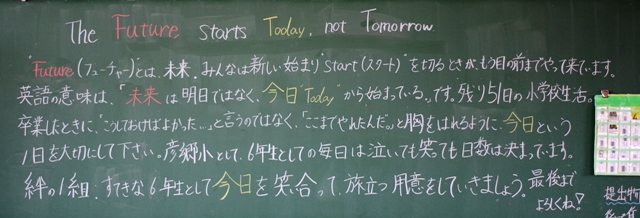 The Future starts Today, not Tomorrow
"Future(フューチャー)"とは、未来。みんなは新しい始まり"Start(スタート)"を切るときが、もう目の前までやって来ています。
英語の意味は、「未来は明日ではなく、今日"Today"から始まっている。」です。残り51日の小学校生活。
卒業したときに、「こうしておけばよかった…。」と言うのではなく、「ここまでやれたんだ。」と胸をはれるように、今日という
1日を大切にして下さい。彦郷小として、6年生としての毎日は泣いても笑っても日数は決まっています。
絆の1組、すてきな6年生として今日を笑い合って、旅立つ用意をしていきましょう。最後まで
よろしくね!
提出物